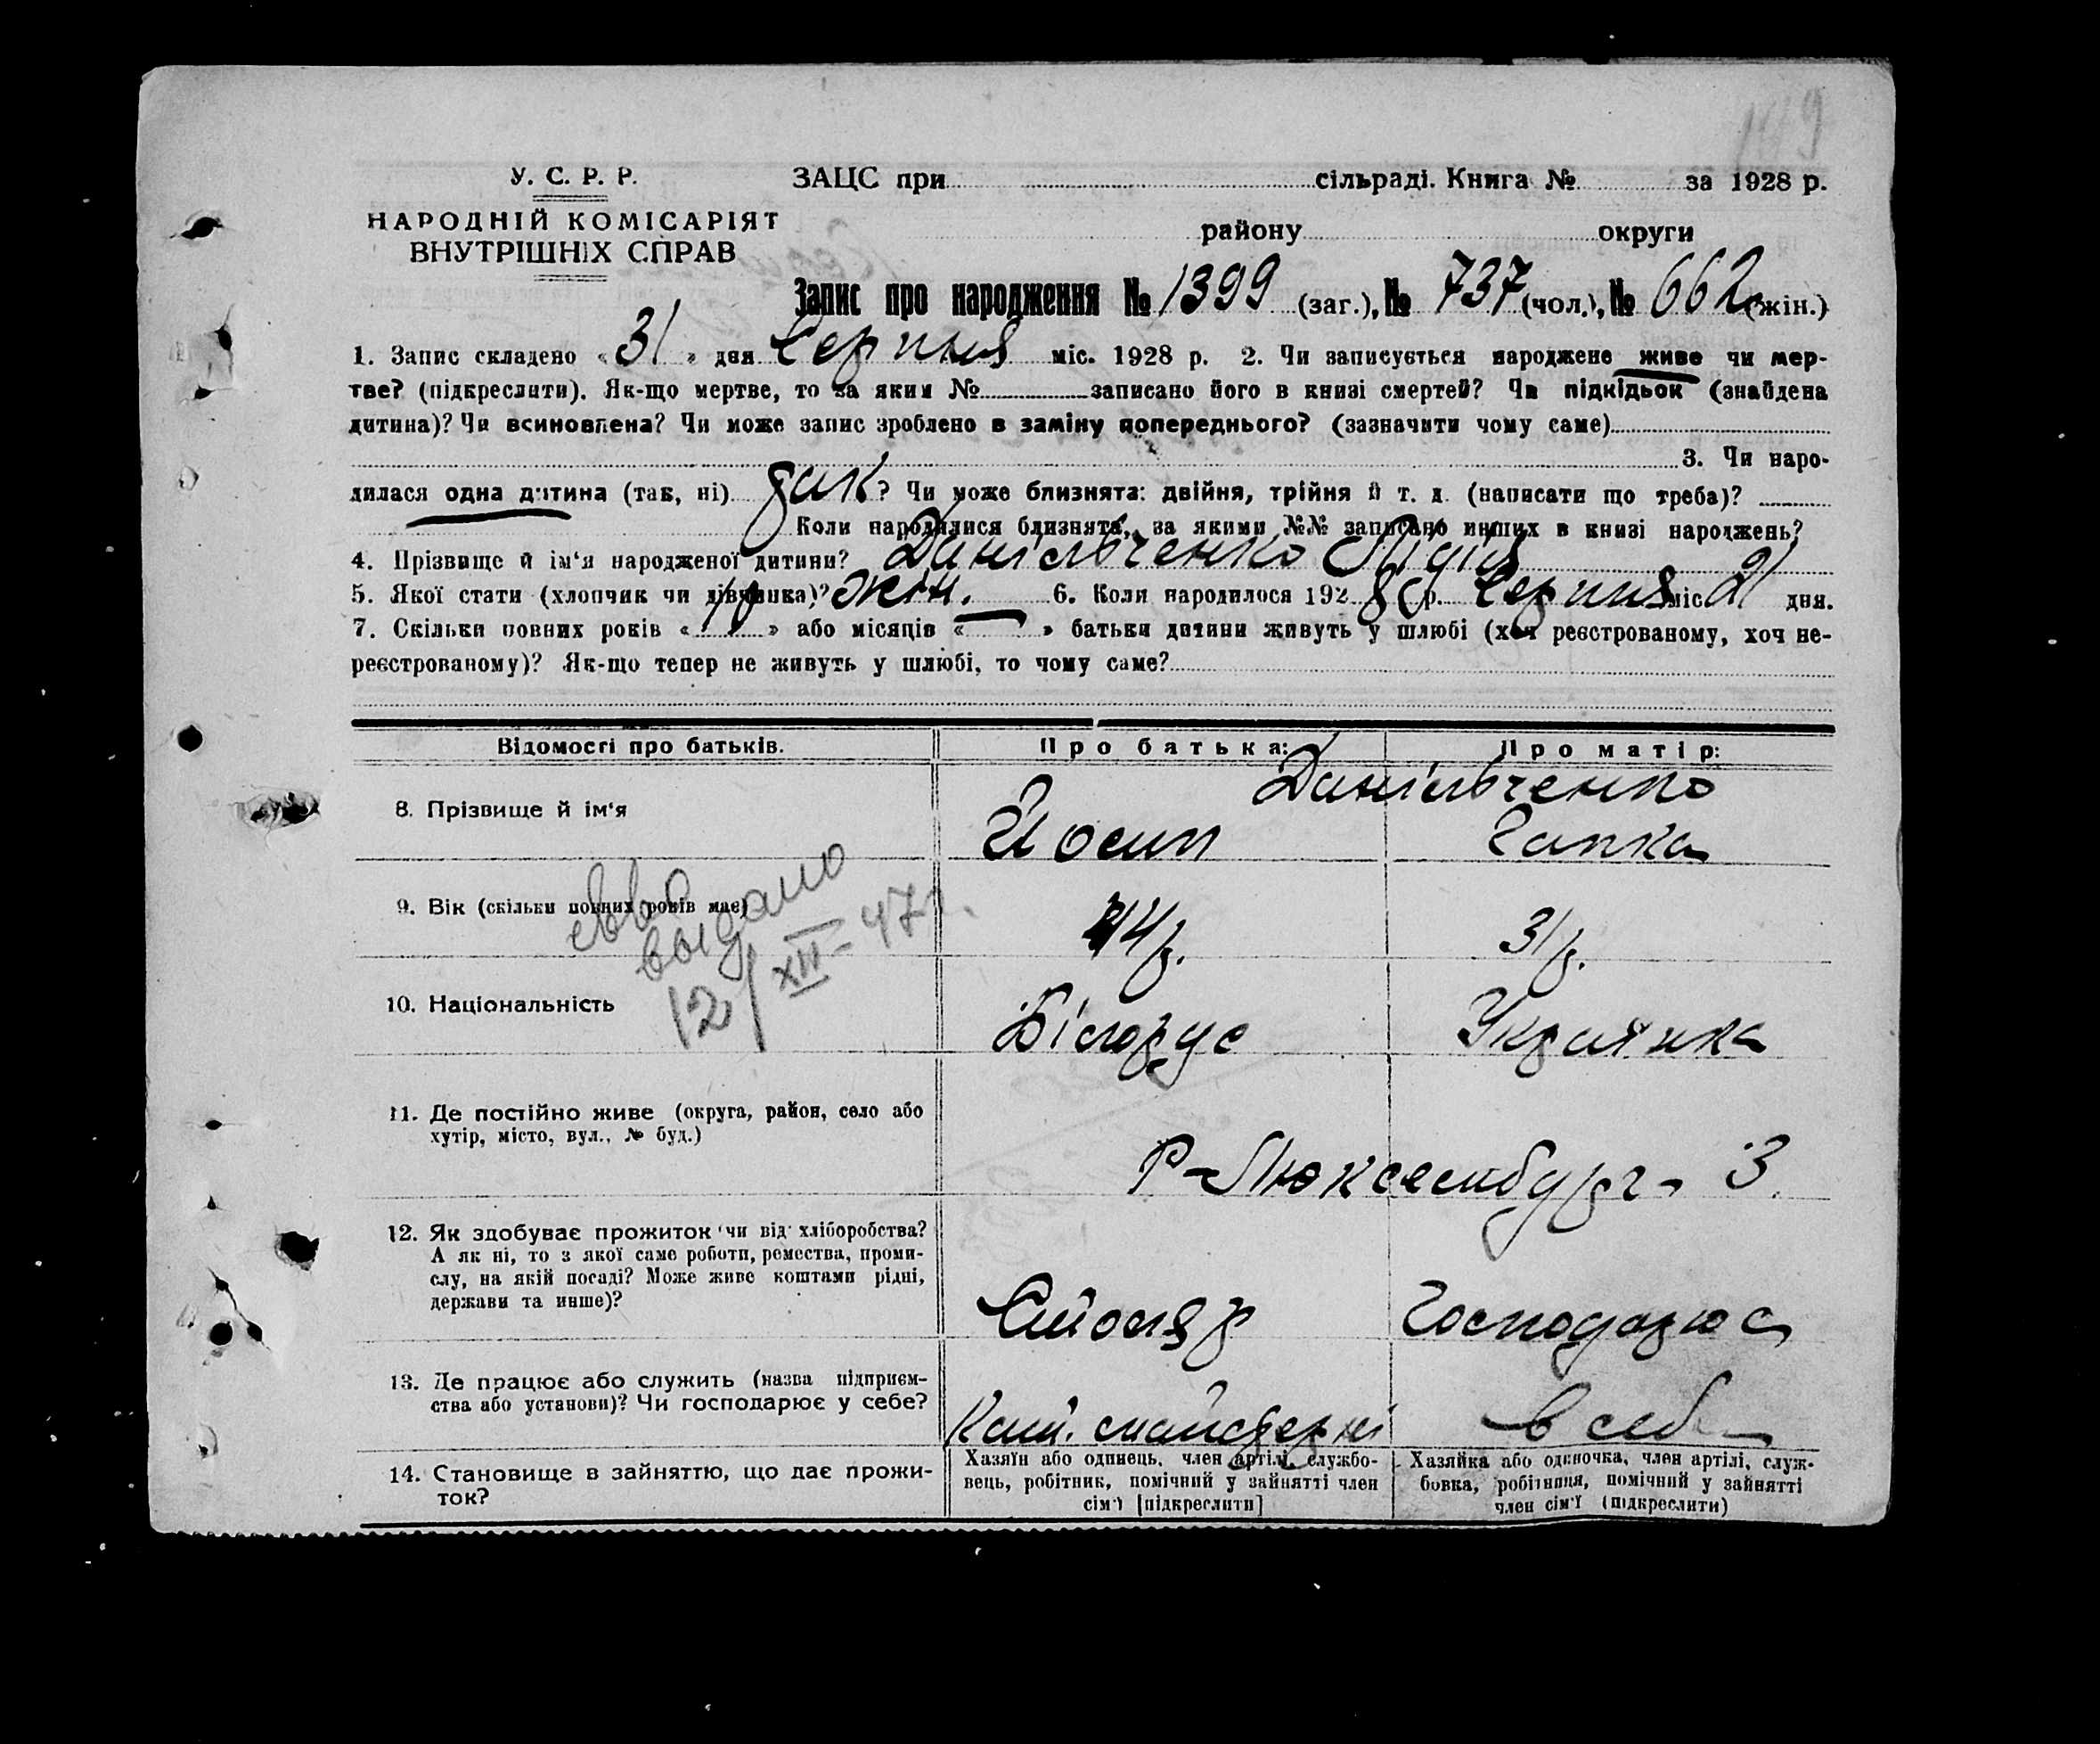 149
У. С. Р. Р.
НАРОДНІЙ КОМІСАРІЯТ
ВНУТРІШНІХ СПРАВ
ЗАЦС при сільраді. Книга № за 1928 р.
району округи
Запис про народження № 1399 (заг.), № 737 (чол.), № 662 (жін.)
1. Запис складено « 31 » дня Серпня міс. 1928 р. 2. Чи записується народжене живе чи мер-
тве? (підкреслити). Як-що мертве, то за яким № записано його в книзі смертей? Чи підкідьок (знайдена
дитина)? Чи всиновлена? Чи може запис зроблено в заміну попереднього? (зазначити чому саме)
3. Чи наро-
дилася одна дитина (так, ні) так? Чи може близнята: двійня, трійня й т. д. (написати що треба)?
Коли народилися близнята, за якими №№ записано инших в книзі народжень?
4. Прізвище й ім‘я народженої дитини? Данільченко Лідія
5. Якої стати (хлопчик чи дівчинка)? жін. 6. Коли народилося 1928 р. Серпня міс 21 дня.
7. Скільки повних років « » або місяців « — » батьки дитини живуть у шлюбі (хоч реєстрованому, хоч не-
реєстрованому)? Як-що тепер не живуть у шлюбі, то чому саме?
Відомості про батьків. Про батька: Про матір:
Данільченко
8. Прізвище й ім‘я Йосип Гапка
9. Вік (скільки повних років має) 44 р. 31 р.
выдано
12/XII-47 г.
10. Національність Білорус Українка
11. Де постійно живе (округа, район, село або
хутір, місто, вул., № буд.)
Р-Люксембург- 3.
12. Як здобуває прожиток чи від хліборобства?
А як ні, то з якої саме роботи, ремества, проми-
слу, на якій посаді? Може живе коштами рідні,
держави та инше)?
Столяр Господарює
13. Де працює або служить (назва підприєм-
ства або установи)? Чи господарює у себе?
майстерні в себе
14. Становище в зайняттю, що дає прожи-
ток?
Хазяїн або одинець, член артілі, службо-
вець, робітник, помічний у зайнятті член
сім‘ї [підкреслити]
Хазяйка або одиночка, член артілі, служ-
бовка, робітниця, помічний у зайнятті
член сім‘ї (підкреслити)